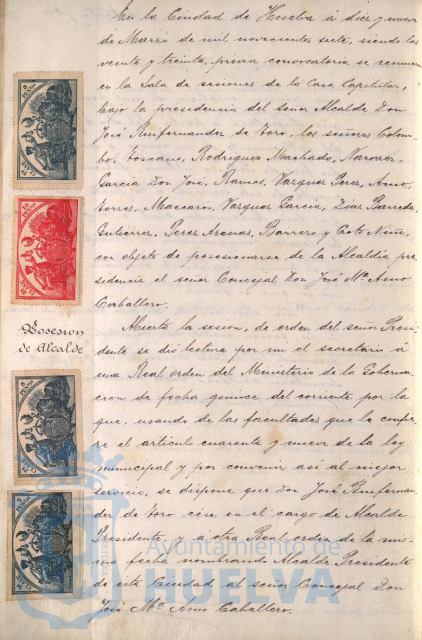 En la Ciudad de Huelva á diez y nueve
de Marzo de mil novecientos siete, siendo las
veinte y treinta, previa convocatoria se reunieron
en la Sala de sesiones de la Casa Capitular,
bajo la presidencia del señor Alcalde Don
José Ruifernandez de Toro, los señores Colom-
bo, Toscano, Rodriguez Machado, Narvaez,
Garcia Don José, Ramos, Vazquez Perez, Amo,
Torres, Mascaros, Vazquez Garcia, Diaz Barreda,
Gutierrez, Perez Arenas, Barrero y Coto Niño,
con objeto de posesionarse de la Alcaldia pre-
sidencia el señor Concejal Don José Mª Amo
Caballero.
Posesion
de Alcalde
Abierta la sesion, de orden del señor Presi-
dente se dió lectura por mi el secretario á
una Real orden del Ministerio de la Goberna-
cion de fecha quince del corriente por la
que, usando de las facultades que le confie-
re el articulo cuarenta y nueve de la ley
municipal y por convenir asi al mejor
servicio, se dispone que Don José Ruifernan-
dez de Toro cése en el cargo de Alcalde
Presidente, y á otra Real orden de la mis-
ma fecha nombrando Alcalde Presidente
de esta Ciudad al señor Concejal Don
José Mª Amo Caballero.
Ayuntamiento de
HUELVA